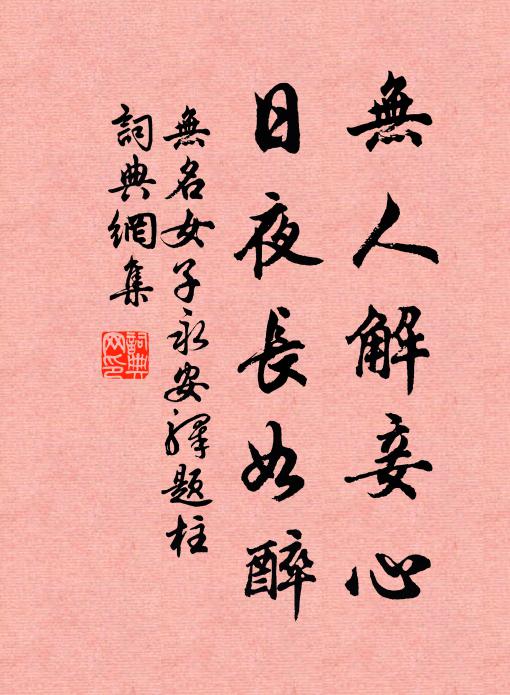 無人解妾心
日夜長如醉
無名女子永安驛題柱
詞典網集
詞典
网印